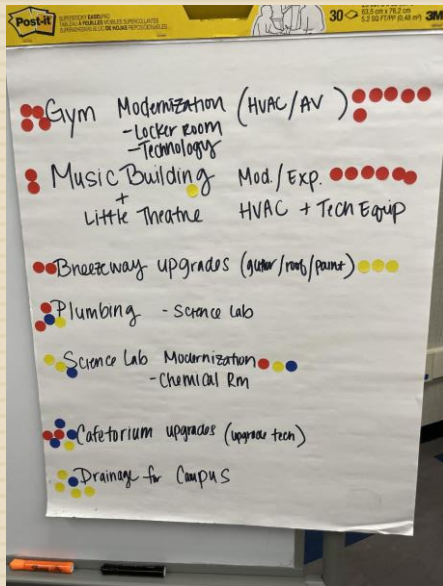 Post-it
SUPERSTICKY EASEL PAD
30
63,5 cm x 76,2 cm
5.2 SQ FT/PP (0,48 m²)
3M
Gym Modernization (HVAC/AV)
-Locker room
-Technology
Music Building Mod./Exp.
+
Little Theatre HVAC + Tech Equip
Breezeway upgrades (gutter/roof/paint)
Plumbing - Science lab
Science Lab Modernization
-Chemical Rm
Cafetorium upgrades (upgrade tech)
Drainage for Campus